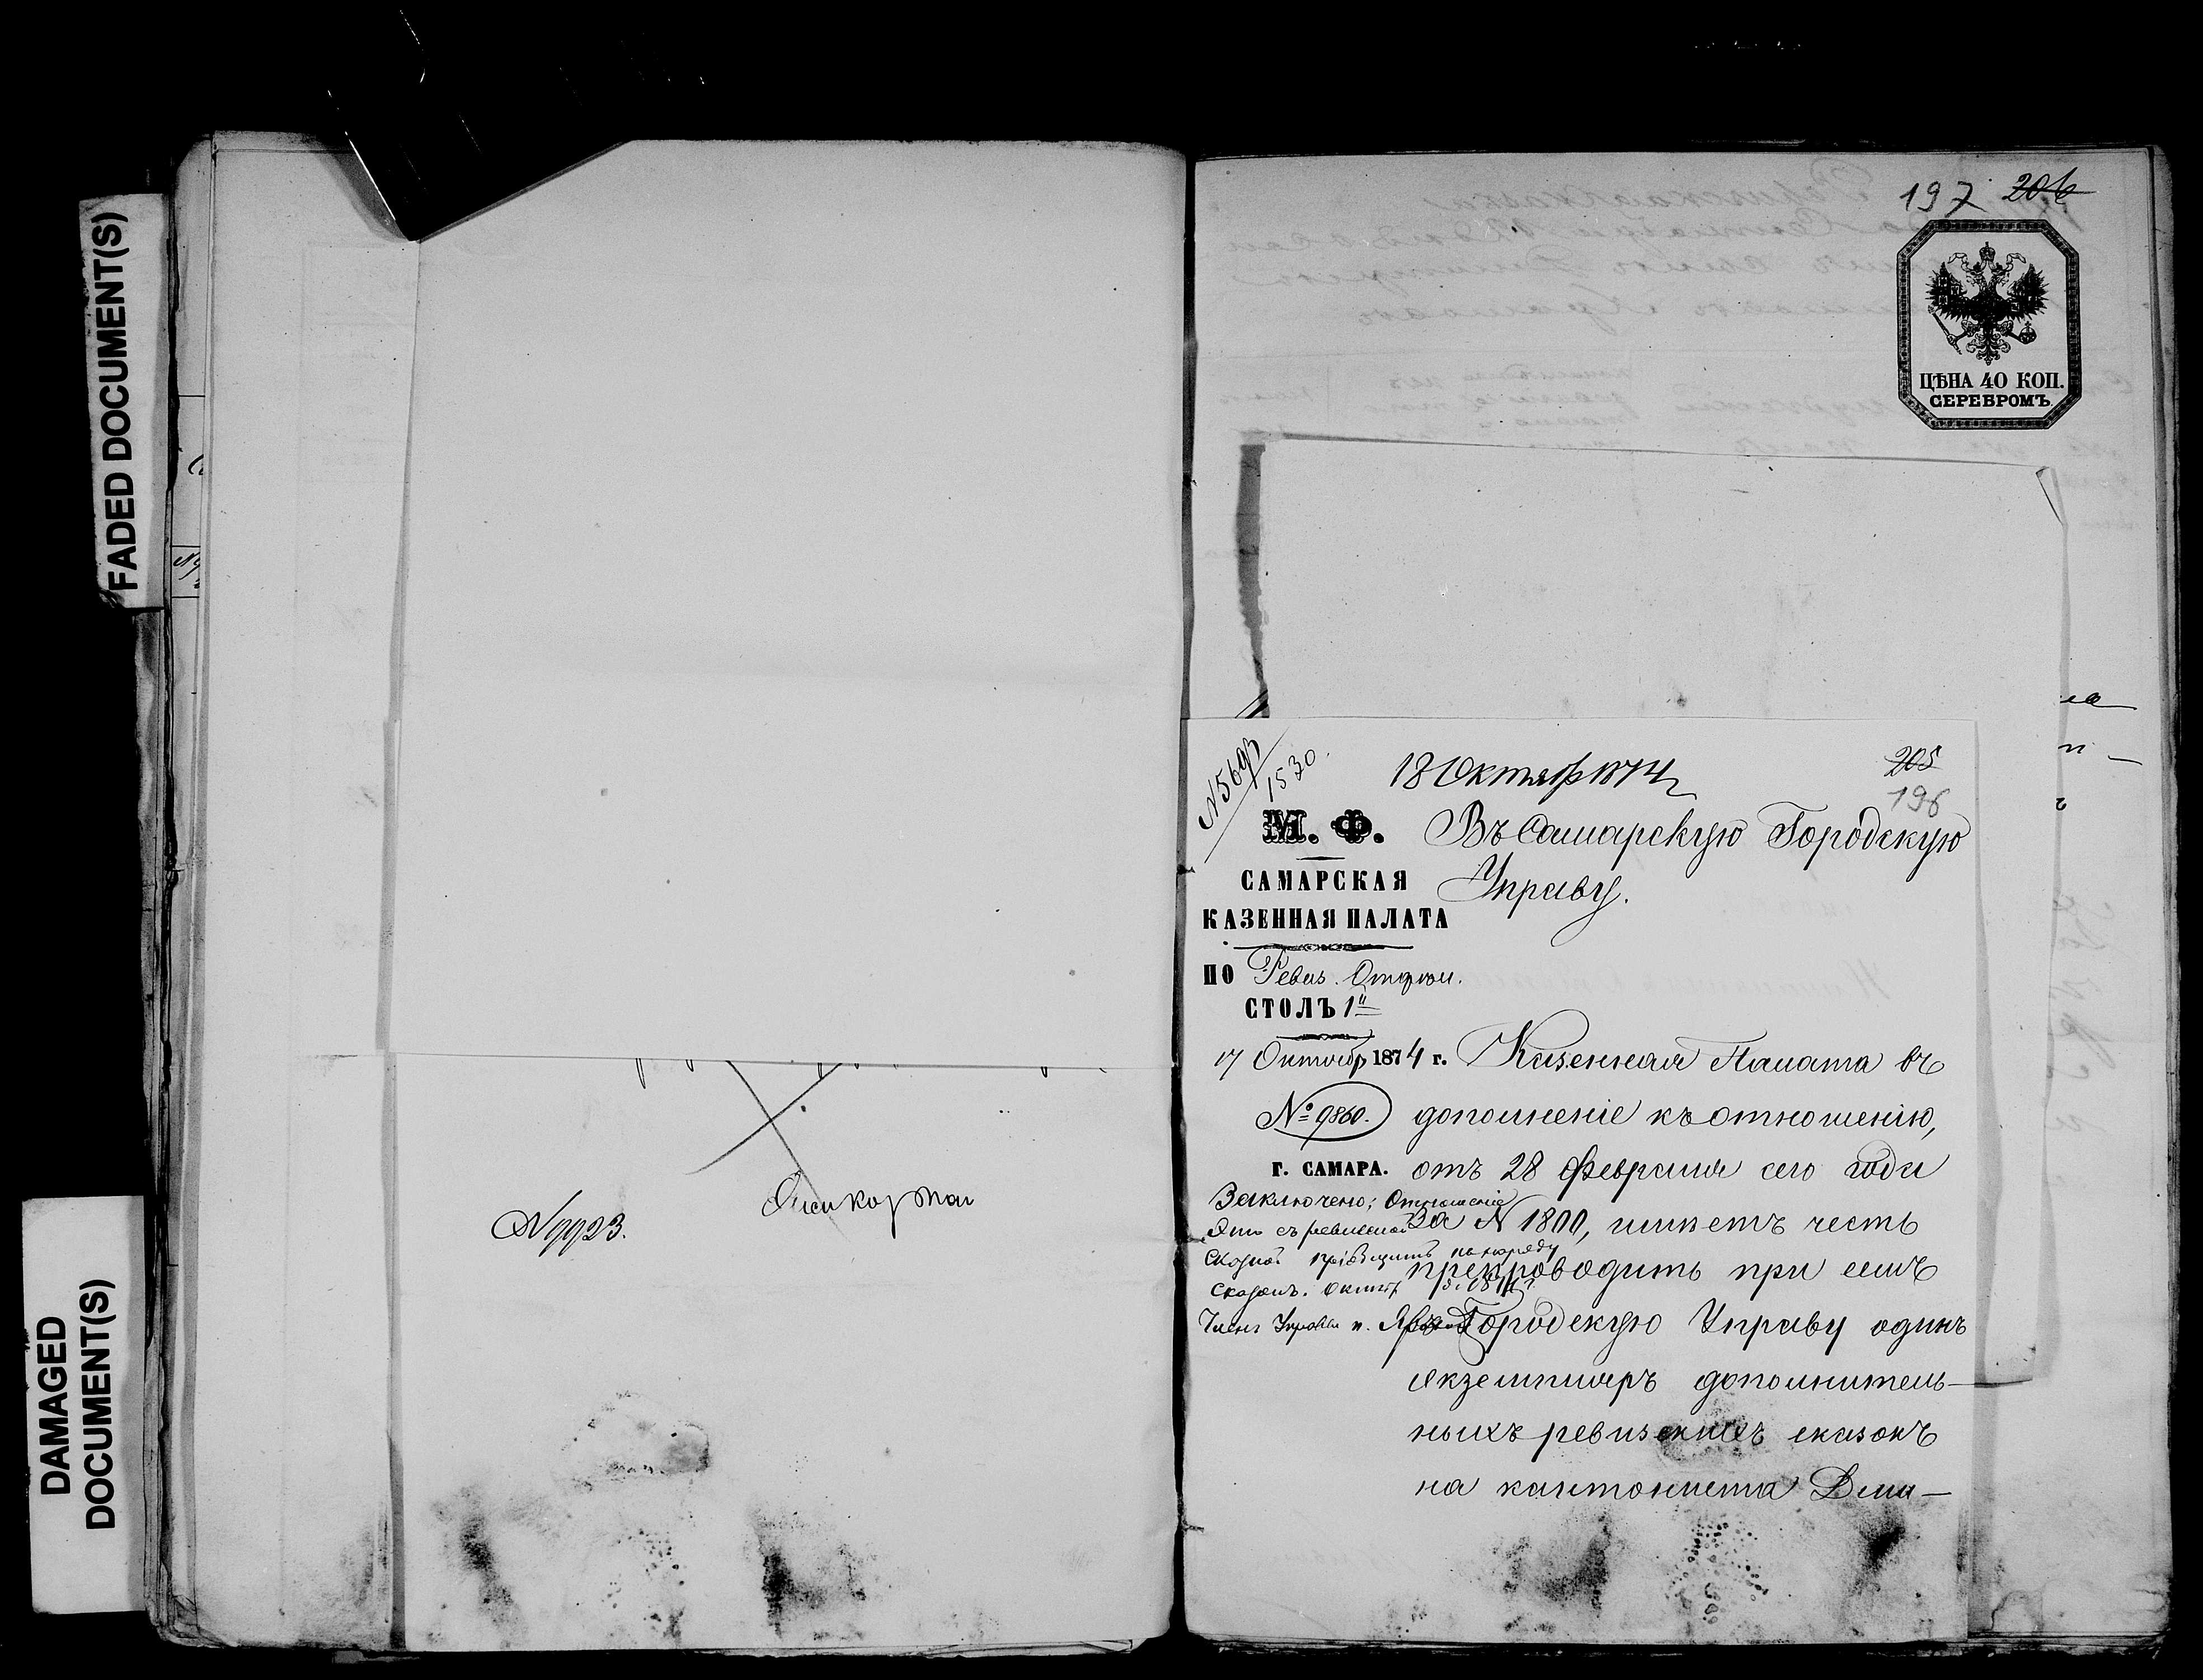 FADED DOCUMENT(S)
DAMAGED
DOCUMENT(S)
№ 9923.
197 206
ЦѢНА 40 КОП.
СЕРЕБРОМЪ.
205
196
№ 5693
1530.
18 Октяб 1874
М. Ф.
Въ Самарскую Городскую
Управу.
САМАРСКАЯ
КАЗЕННАЯ ПАЛАТА
ПО Ревиз. Отдѣл.
СТОЛЪ 1й
17 Октябр 1874 г.
№ 9860.
г. САМАРА.
Казенная Палата въ
дополненіе къ отношенію,
отъ 28 Февраля сего года
за № 1800, имѣетъ честь
препроводить при семъ
въ Городскую Управу одинъ
экземпляръ дополнитель-
ныхъ ревизскихъ сказокъ
на кантониста Дми-
Заключено: Отношеніе
это съ ревизской
сказкой пріобщить къ наряду
сказокъ. Октяб
Членъ Управы